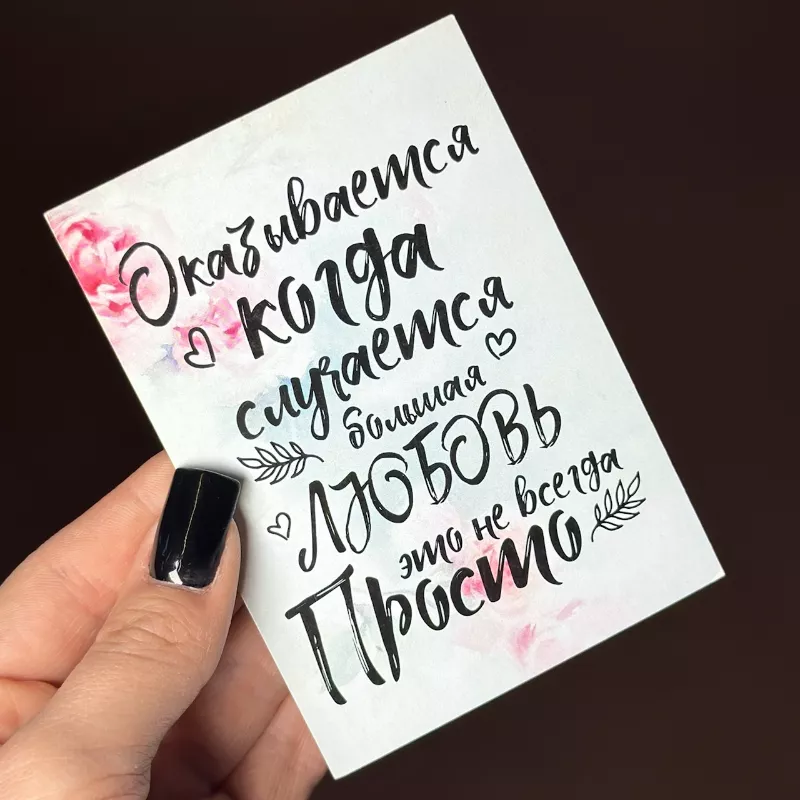 Оказывается
когда
случается
большая
ЛЮБОВЬ
это не всегда
Просто